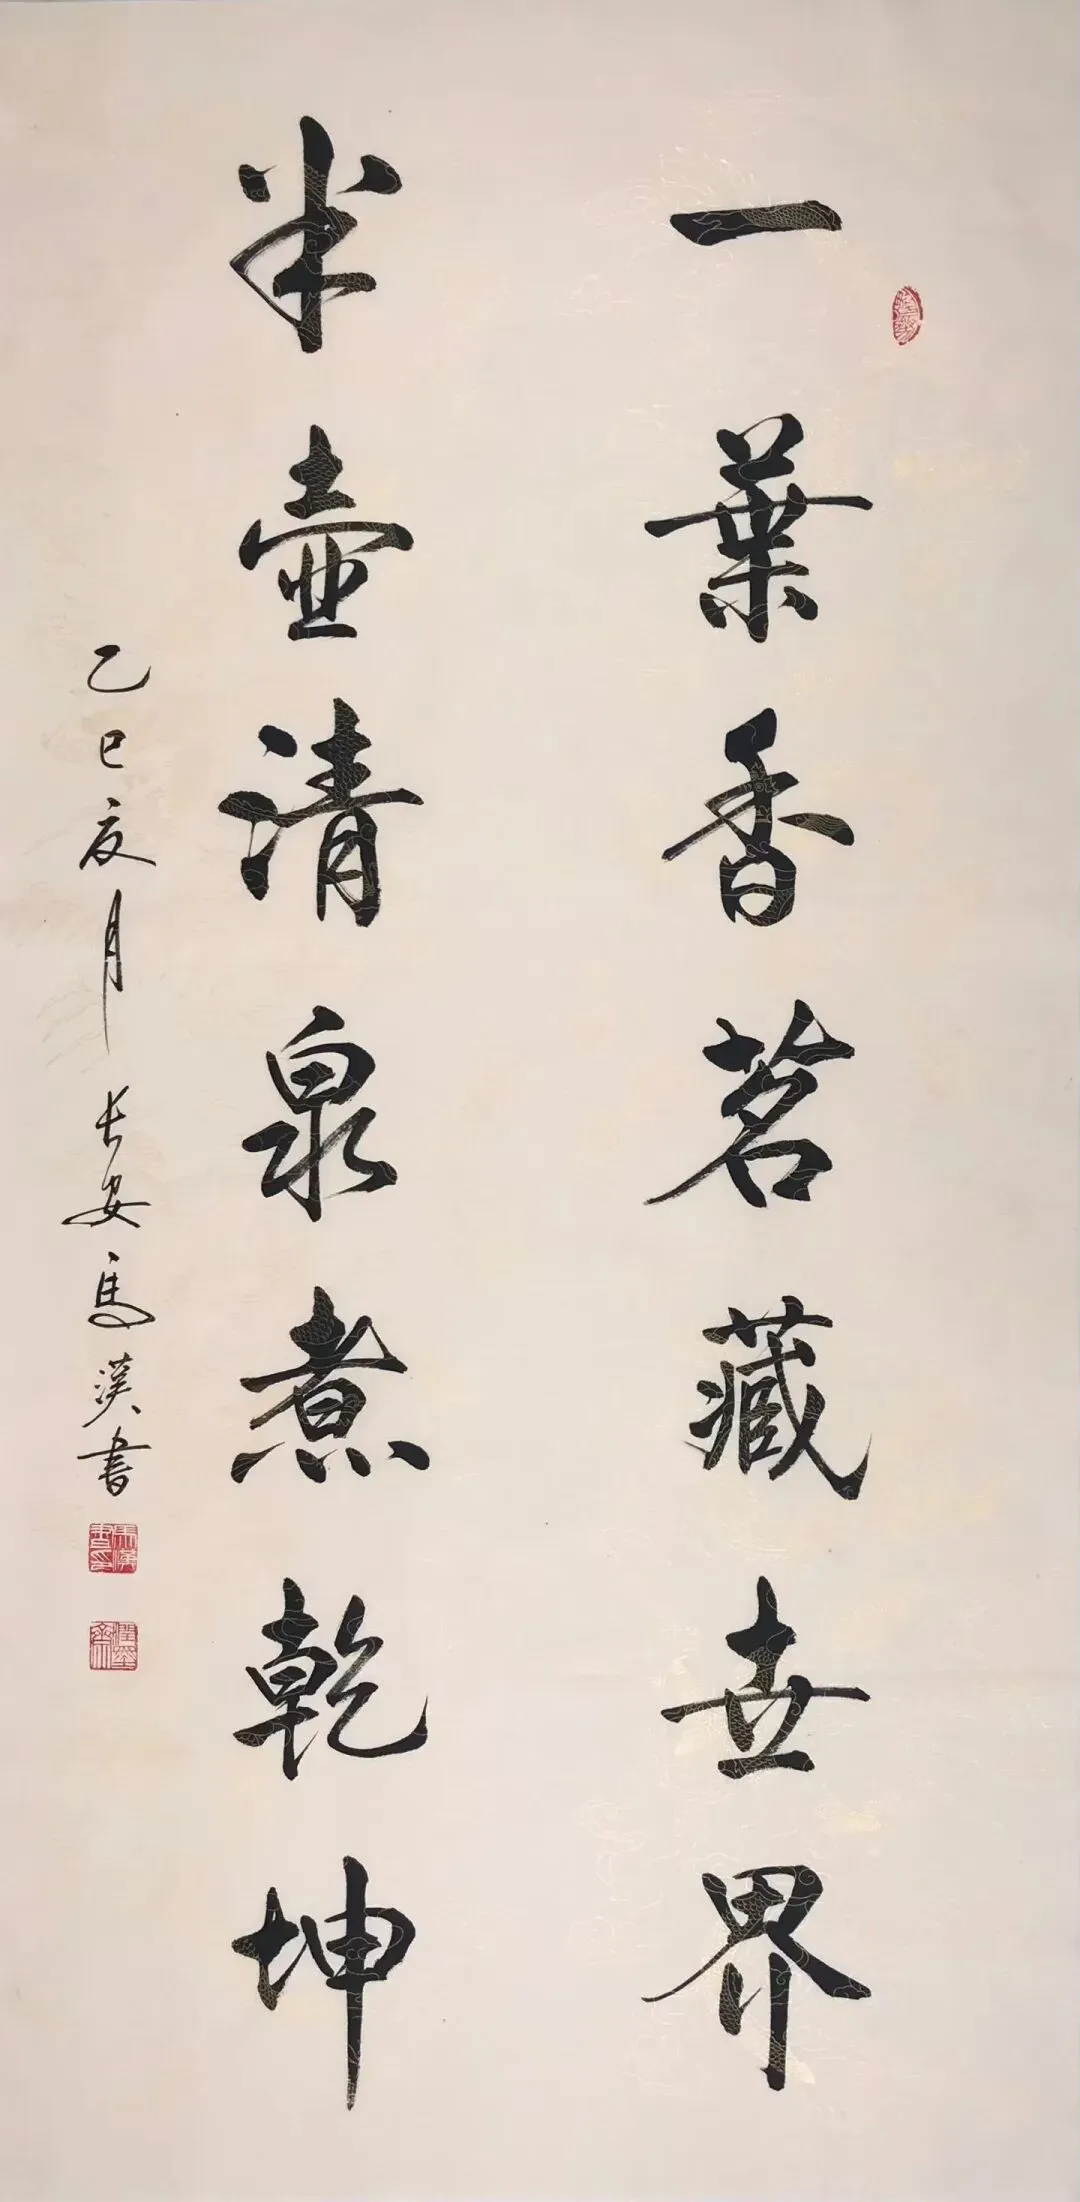 一葉香茗藏世界
半壺清泉煮乾坤
乙巳夜月長安馬漢書
馬漢書印